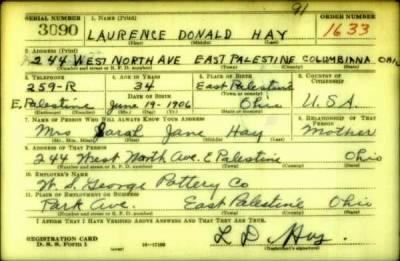 91
SERIAL NUMBER 1. NAME (Print) ORDER NUMBER
3090 LAURENCE DONALD HAY 1633
(First) (Middle) (Last)
2. ADDRESS (Print)
244 WEST NORTH AVE EAST PALESTINE COLUMBIANA OHIO
(Number and street or R. F. D. number) (Town) (County) (State)
3. TELEPHONE 4. AGE IN YEARS 5. PLACE OF BIRTH 6. COUNTRY OF CITIZENSHIP
259-R 34 East Palestine
DATE OF BIRTH (Town or county)
E. Palestine June 19-1906 Ohio U.S.A.
(Exchange) (Number) (Mo.) (Day) (Yr.) (State or country)
7. NAME OF PERSON WHO WILL ALWAYS KNOW YOUR ADDRESS 8. RELATIONSHIP OF THAT PERSON
Mrs Sarah Jane Hay Mother
(Mr., Mrs., Miss) (First) (Middle) (Last)
9. ADDRESS OF THAT PERSON
244 West North Ave. E Palestine Ohio
(Number and street or R. F. D. number) (Town) (County) (State)
10. EMPLOYER'S NAME
W. S. George Pottery Co
11. PLACE OF EMPLOYMENT OR BUSINESS
Park Ave. East Palestine Ohio
(Number and street or R. F. D. number) (Town) (County) (State)
I AFFIRM THAT I HAVE VERIFIED ABOVE ANSWERS AND THAT THEY ARE TRUE.
REGISTRATION CARD
D. S. S. Form 1 16-17105 L D Hay
(Registrant's signature)